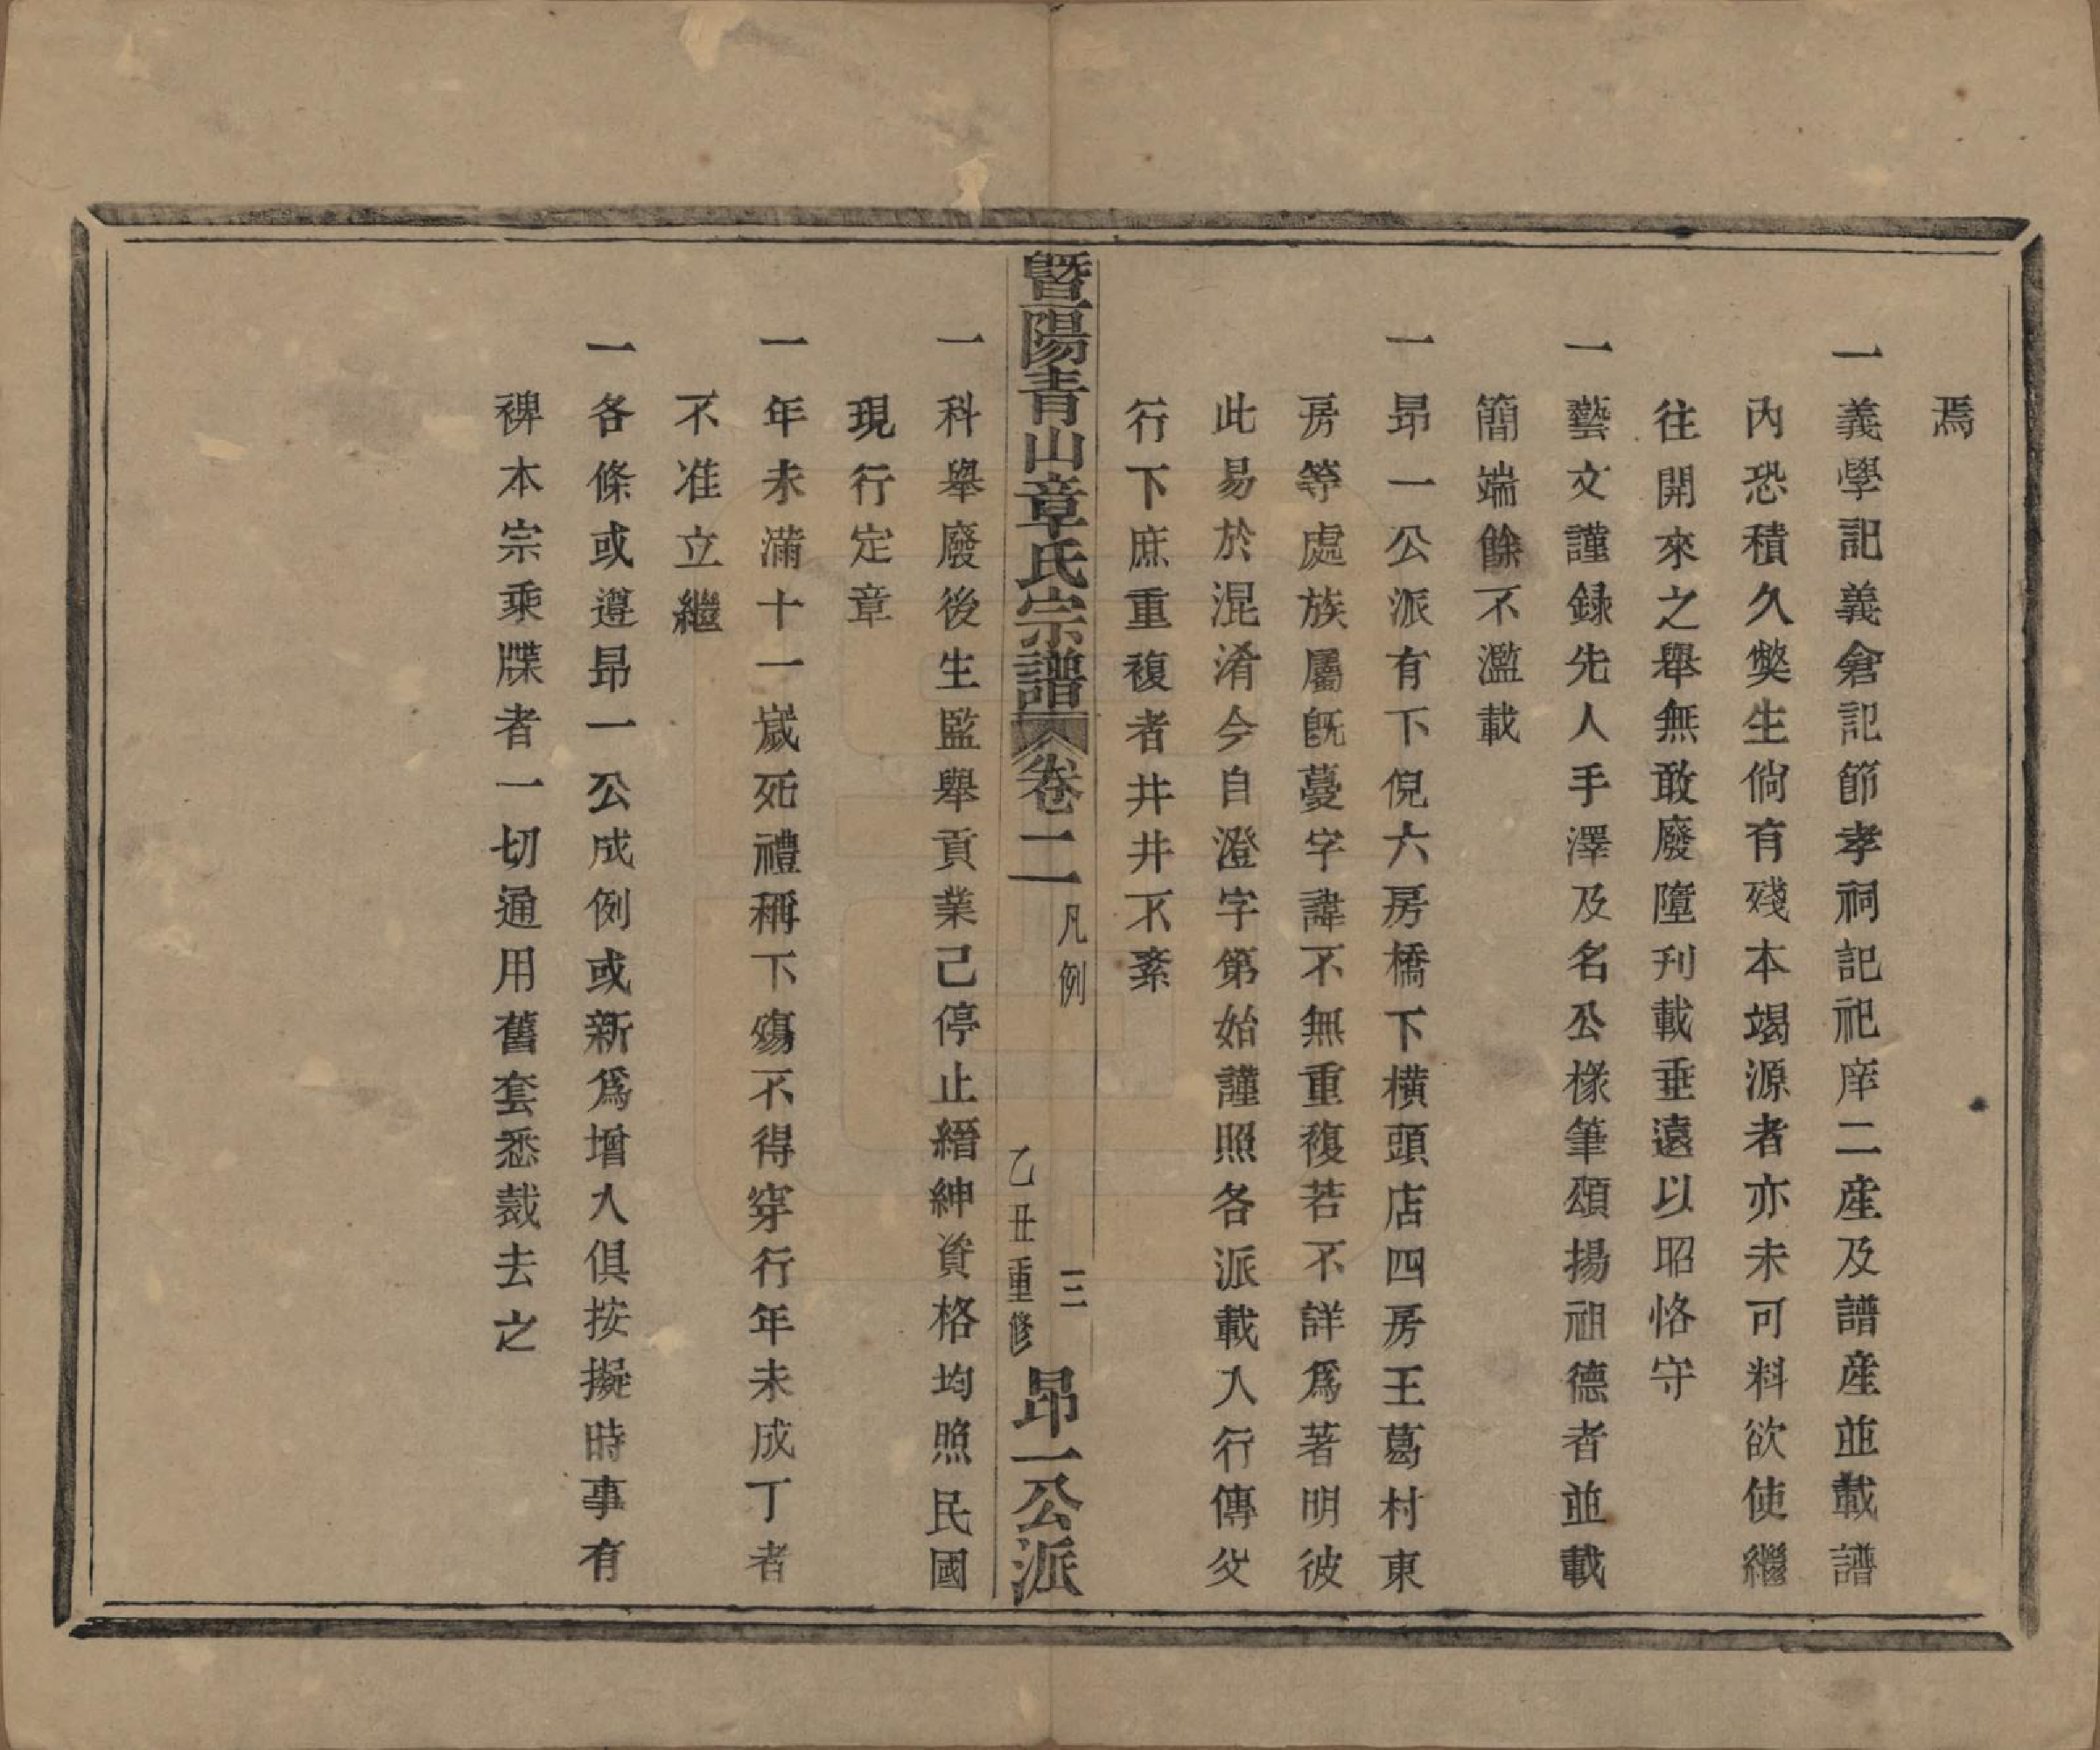 焉
一義學記義倉記節孝祠記祀庠二産及譜産並載譜
內恐積久獘生倘有殘本竭源者亦未可料欲使繼
往開來之舉無敢廢墮刋載垂遠以昭恪守
一藝文謹録先人手澤及名公椽筆頌揚祖德者並載
簡端餘不濫載
一昻一公派有下倪六房橋下橫頭店四房王葛村東
房等處族屬旣蔓字諱不無重複若不詳爲著明彼
此易於混淆今自澄字第始謹照各派載入行傳父
行下庶重複者井井不紊
暨陽青山章氏宗譜
卷二
凡例
三
乙丑重修
昻一公派
一科舉廢後生監舉貢業已停止縉紳資格均照民國
現行定章
一年未滿十一歲死禮稱下殤不得穿行年未成丁者
不准立繼
一各條或遵昻一公成例或新爲增入俱按擬時事有
裨本宗乘牒者一切通用舊套悉裁去之